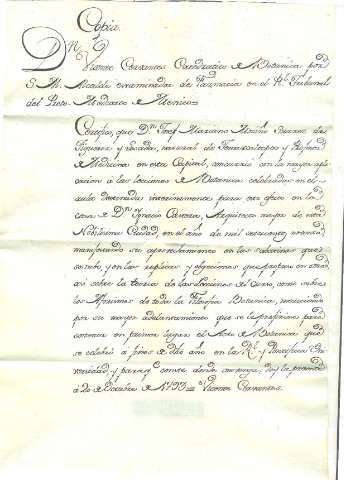 Copia
Dn. Vicente Cervantes Catedratico de Botanica por
S. M. Alcalde examinador de Farmacia en el Rl. Tribunal
del Proto-Medicato de Mexico
Certifico, que Dn. Josef Mariano Moziño Suares de
Figueroa y Losada, natural de Temascaltepec y Profesor
de Medicina en esta Capital, concurrió con la mayor apli-
cacion á las lecciones de Botanica celebradas en el
aula destinada interinamente para este efecto en la
casa de Dn. Ignacio Castera, Arquitecto mayor de esta
Nobilisima Ciudad, en el año de mil setecientos ochenta
manifestando su aprovechamiento en las sabatinas que
sostubo, y en las replicas y objeciones que propuso en otras
asi sobre la teorica de las Lecciones del Curso, como sobre
los Aforismos de toda la Filosofia Botanica, mereciendo
por su mayor adelantamiento que se le prefiriese para
sostener en primer lugar el Acto de Botanica que
se celebró á fines de dho año en la Rl. y Pontificia Uni-
versidad, y para q. conste donde convenga, doy la presente
á 20 de Octubre de 1793 = Vicente Cervantes.